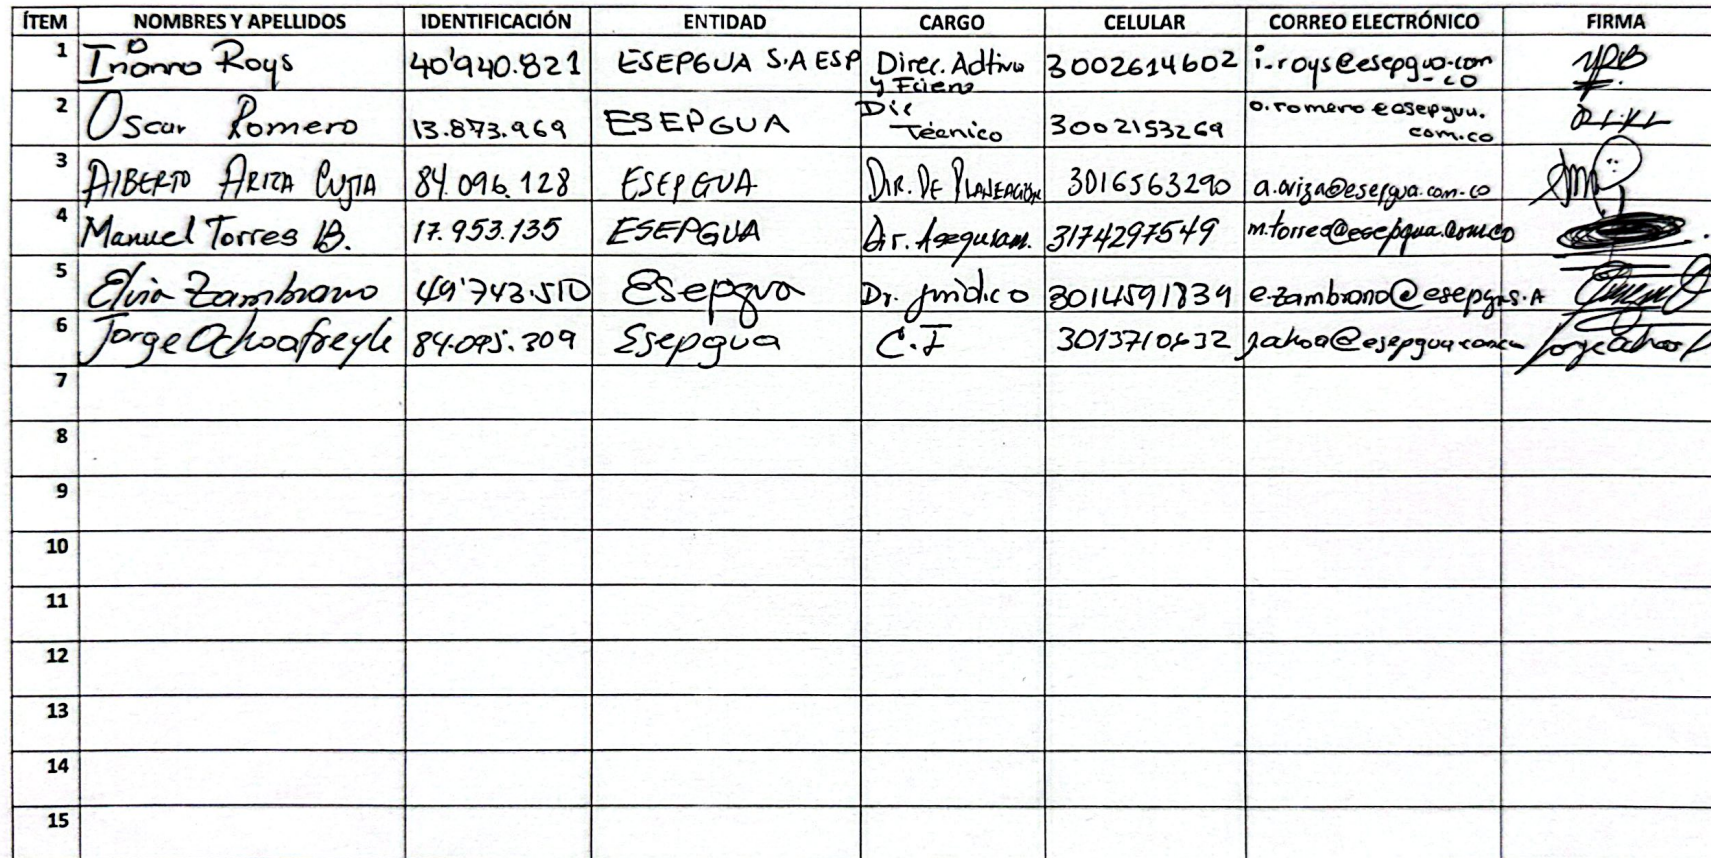 ÍTEM NOMBRES Y APELLIDOS IDENTIFICACIÓN ENTIDAD CARGO CELULAR CORREO ELECTRÓNICO FIRMA
1 Roys 40'940.821 ESEPGUA S.A ESP Direc. Adtivo y Fciero 3002614602 i-roys@esepgua.com-co
2 Oscar Romero 13.873.969 ESEPGUA Dir Técnico 3002153269 o.romero@esepgua.com.co
3 AlBERTO ARIZA CUJIA 84.096.128 ESEPGUA DIR. DE PLANEACIÓN 3016563290 a.ariza@esepgua.com.co
4 Manuel Torres B. 17.953.135 ESEPGUA Dir. Aseguram. 3174297549 m.torres@esepgua.com.co
5 Elvia Zambrano 49'743.510 Esepgua Dr. jurídico 3014591839 e.zambrano@esepgus.A
6 Jorge Ochoa freyle 84.095.309 Esepgua C.I 3013710632
7
8
9
10
11
12
13
14
15